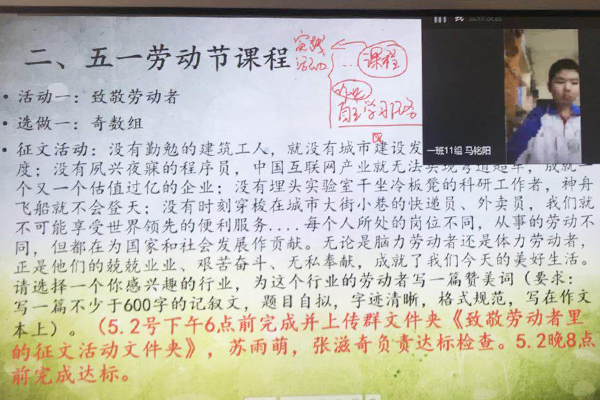 二、五一劳动节课程
实践
活动
课程
作业
自主学习服务
• 活动一：致敬劳动者
• 选做一：奇数组
• 征文活动：没有勤勉的建筑工人，就没有城市建设发
度；没有夙兴夜寐的程序员，中国互联网产业就无法实现弯道超车，成就一
个又一个估值过亿的企业；没有埋头实验室干坐冷板凳的科研工作者，神舟
飞船就不会登天；没有时刻穿梭在城市大街小巷的快递员、外卖员，我们就
不可能享受世界领先的便利服务....每个人所处的岗位不同，从事的劳动不
同，但都在为国家和社会发展作贡献。无论是脑力劳动者还是体力劳动者，
正是他们的兢兢业业、艰苦奋斗、无私奉献，成就了我们今天的美好生活。
请选择一个你感兴趣的行业，为这个行业的劳动者写一篇赞美词（要求：
写一篇不少于600字的记叙文，题目自拟，字迹清晰，格式规范，写在作文
本上）。（5.2号下午6点前完成并上传群文件夹《致敬劳动者里
的征文活动文件夹》，苏雨萌，张滋奇负责达标检查。5.2晚8点
前完成达标。
一班11组 马铭阳